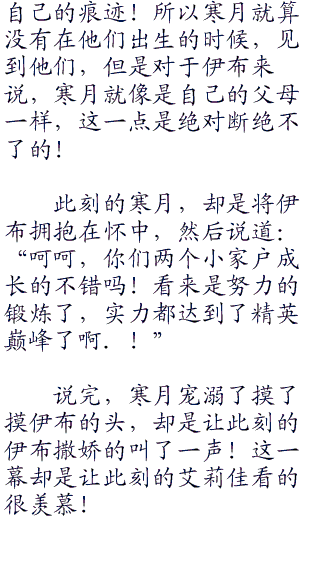 自己的痕迹！所以寒月就算
没有在他们出生的时候，见
到他们，但是对于伊布来
说，寒月就像是自己的父母
一样，这一点是绝对断绝不
了的！
此刻的寒月，却是将伊
布拥抱在怀中，然后说道：
“呵呵，你们两个小家户成
长的不错吗！看来是努力的
锻炼了，实力都达到了精英
巅峰了啊．！”
说完，寒月宠溺了摸了
摸伊布的头，却是让此刻的
伊布撒娇的叫了一声！这一
幕却是让此刻的艾莉佳看的
很羡慕！